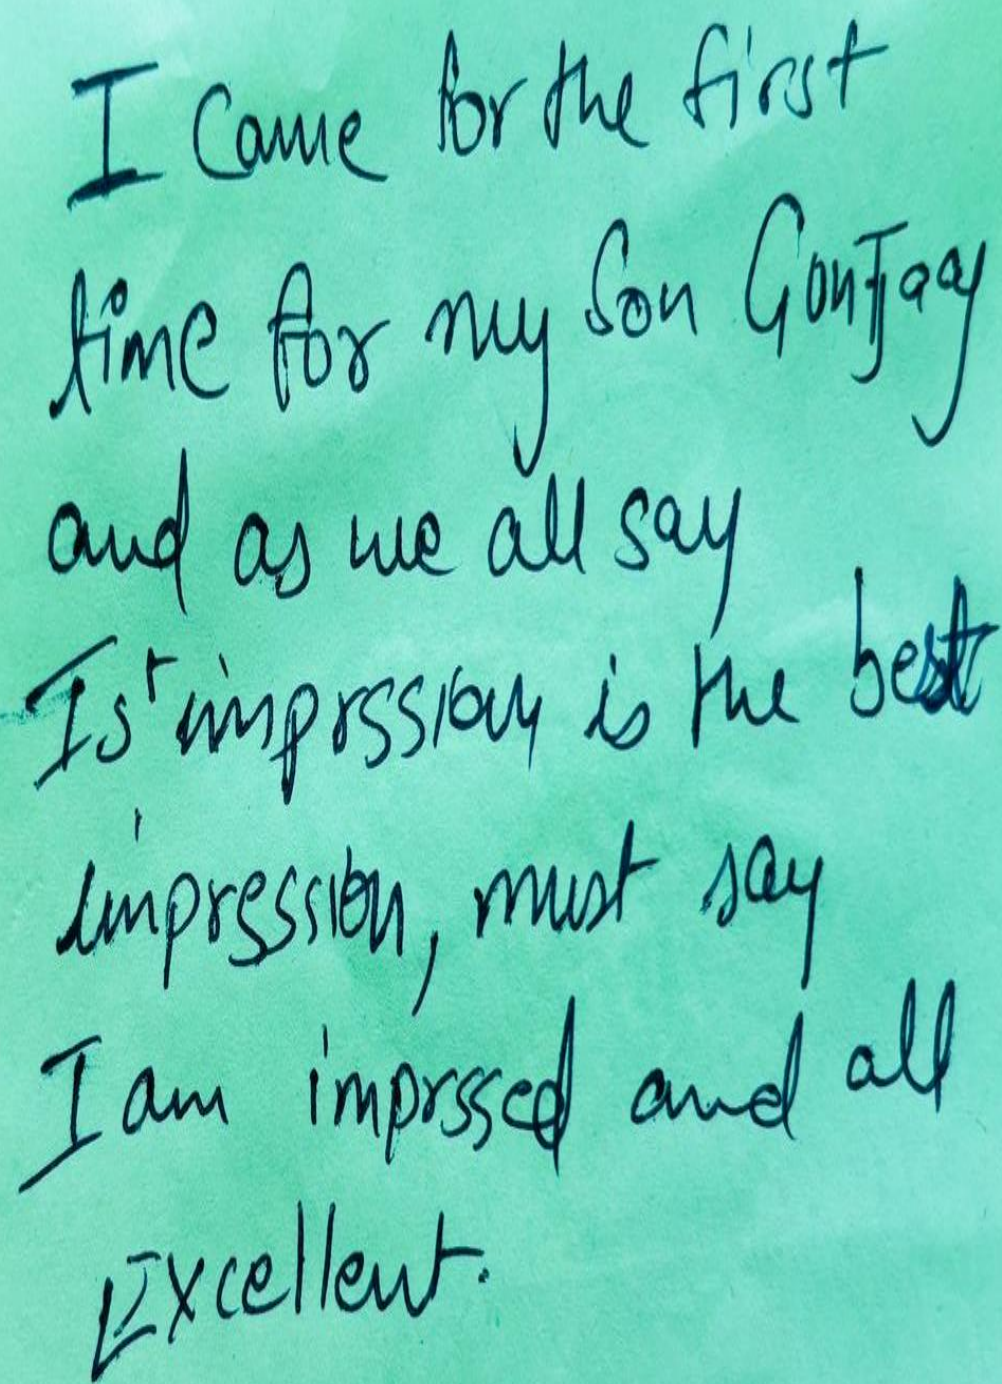 I Came for the first
time for my Son GonJay
and as we all say
Ist imprssion is the best
impression, must say
I am imprssed and all
Excellent.